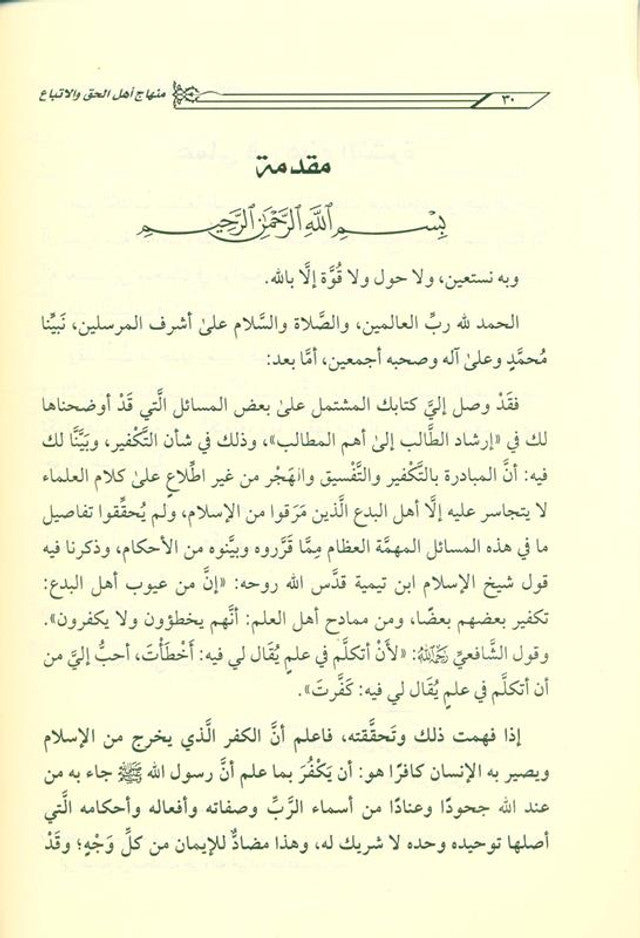 منهاج أهل الحق والاتباع
٣٠
مقدمة
بِسْمِ اللَّهِ الرَّحْمَٰنِ الرَّحِيمِ
وبه نستعين، ولا حول ولا قُوَّة إلَّا بالله.
الحمد لله ربِّ العالمين، والصَّلاة والسَّلام علىٰ أشرف المرسلين، نَبيِّنا
مُحمَّدٍ وعلىٰ آله وصحبه أجمعين، أمَّا بعد:
فقَدْ وصل إليَّ كتابك المشتمل علىٰ بعض المسائل الَّتي قَدْ أوضحناها
لك في «إرشاد الطَّالب إلىٰ أهم المطالب»، وذلك في شأن التَّكْفير، وبَيَّنَّا لك
فيه: أنَّ المبادرة بالتَّكْفير والتَّفْسيق والهَجْر من غير اطِّلاعٍ علىٰ كلام العلماء
لا يتجاسر عليه إلَّا أهل البدع الَّذين مَرَقوا من الإسلام، ولم يُحقِّقوا تفاصيل
ما في هذه المسائل المهمَّة العظام مِمَّا قَرَّروه وبيَّنوه من الأحكام، وذكرنا فيه
قول شيخ الإسلام ابن تيمية قدَّس الله روحه: «إنَّ من عيوب أهل البدع:
تكفير بعضهم بعضًا، ومن ممادح أهل العلم: أنَّهم يخطؤون ولا يكفرون».
وقول الشَّافعيِّ رحمه الله: «لأَنْ أتكلَّم في علمٍ يُقَال لي فيه: أَخْطَأْتَ، أحبُّ إليَّ من
أن أتكلَّم في علمٍ يُقَال لي فيه: كَفَّرتَ».
إذا فهمت ذلك وتَحقَّقته، فاعلم أنَّ الكفر الَّذي يخرج من الإسلام
ويصير به الإنسان كافرًا هو: أن يَكْفُرَ بما علم أنَّ رسول الله ﷺ جاء به من
عند الله جحودًا وعنادًا من أسماء الرَّبِّ وصفاته وأفعاله وأحكامه الَّتي
أصلها توحيده وحده لا شريك له، وهذا مضادٌّ للإيمان من كلِّ وَجْهٍ؛ وقَدْ